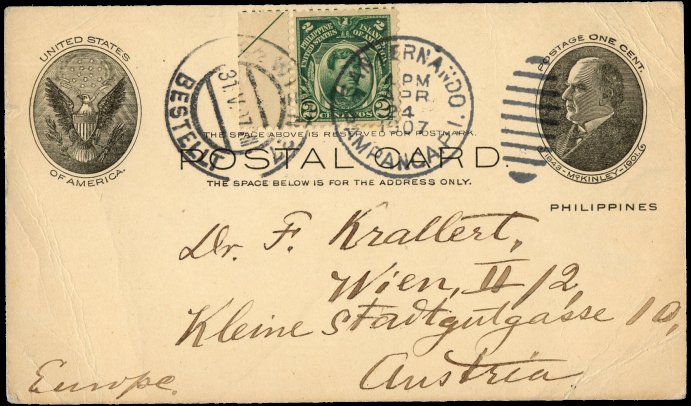 UNITED STATES
OF AMERICA.
BESTELLT
WIEN
31.V.07
PHILIPPINE ISLANDS
UNITED STATES OF AMERICA
2 CENTAVOS 2
SAN FERNANDO
PM
APR
24
1907
PAMPANGA P.I.
POSTAGE ONE CENT.
1843-McKINLEY-1901.
THE SPACE ABOVE IS RESERVED FOR POSTMARK.
POSTAL CARD.
THE SPACE BELOW IS FOR THE ADDRESS ONLY.
PHILIPPINES
Dr. F. Krallert,
Wien, II/2,
Kleine Stadtgutgasse 10,
Europe.
Austria